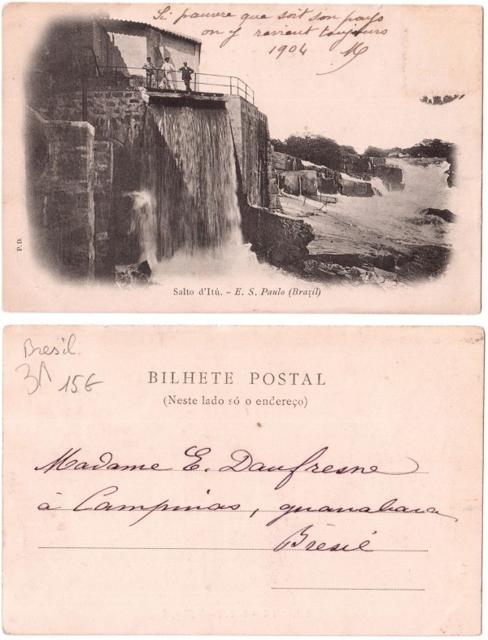 Si pauvre que soit son pays
on y revient toujours
1904 M
P. D.
Salto d'Itú. - E. S. Paulo (Brazil)
Bresil
31 15€
BILHETE POSTAL
(Neste lado só o endereço)
Madame E. Daufresne
à Campinas, guanabara
Brésil